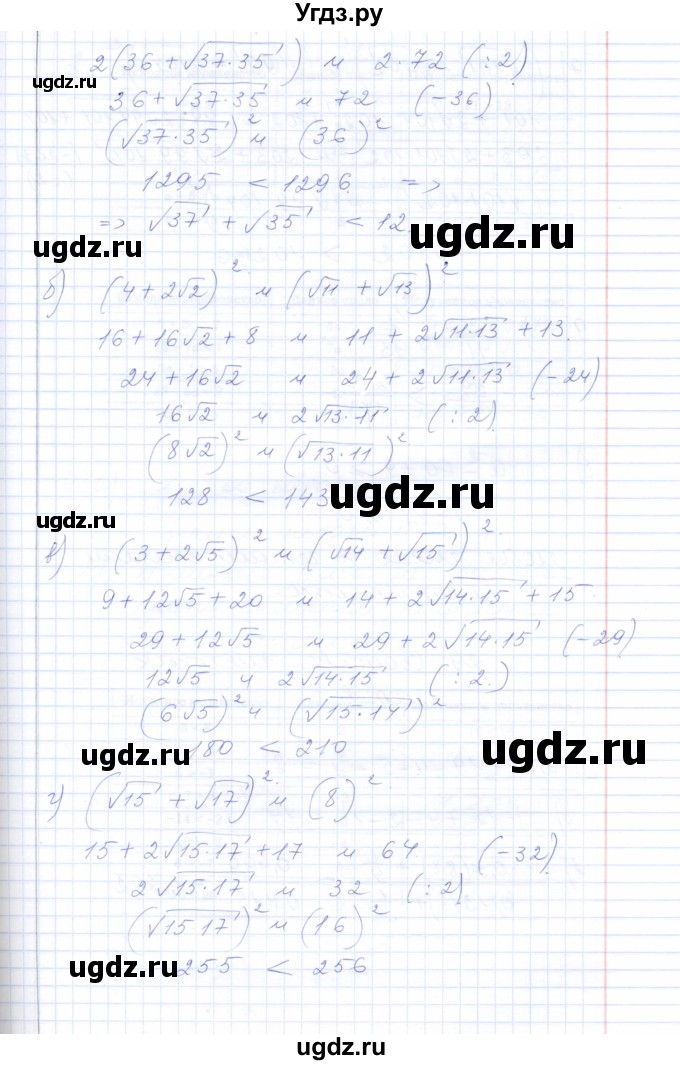 Угдз.ру
2(36 + √37·35) и 2·72 (:2)
ugdz.ru
36 + √37·35 и 72 (-36)
(√37·35)² и (36)²
1295 < 1296 =>
=> √37 + √35 < 12
ugdz.ru
ugdz.ru
б) (4 + 2√2)² и (√11 + √13)²
16 + 16√2 + 8 и 11 + 2√11·13 + 13.
24 + 16√2 и 24 + 2√11·13 (-24)
ugdz.ru
16√2 и 2√13·11 (:2)
(8√2)² и (√13·11)²
128 < 143
ugdz.ru
в) (3 + 2√5)² и (√14 + √15)²
9 + 12√5 + 20 и 14 + 2√14·15 + 15
ugdz.ru
29 + 12√5 и 29 + 2√14·15 (-29)
12√5 и 2√14·15 (:2)
(6√5)² и (√15·14)²
180 < 210
ugdz.ru
ugdz.ru
г) (√15 + √17)² и (8)²
15 + 2√15·17 + 17 и 64 (-32)
ugdz.ru
2√15·17 и 32 (:2)
(√15·17)² и (16)²
255 < 256
ugdz.ru
ugdz.ru